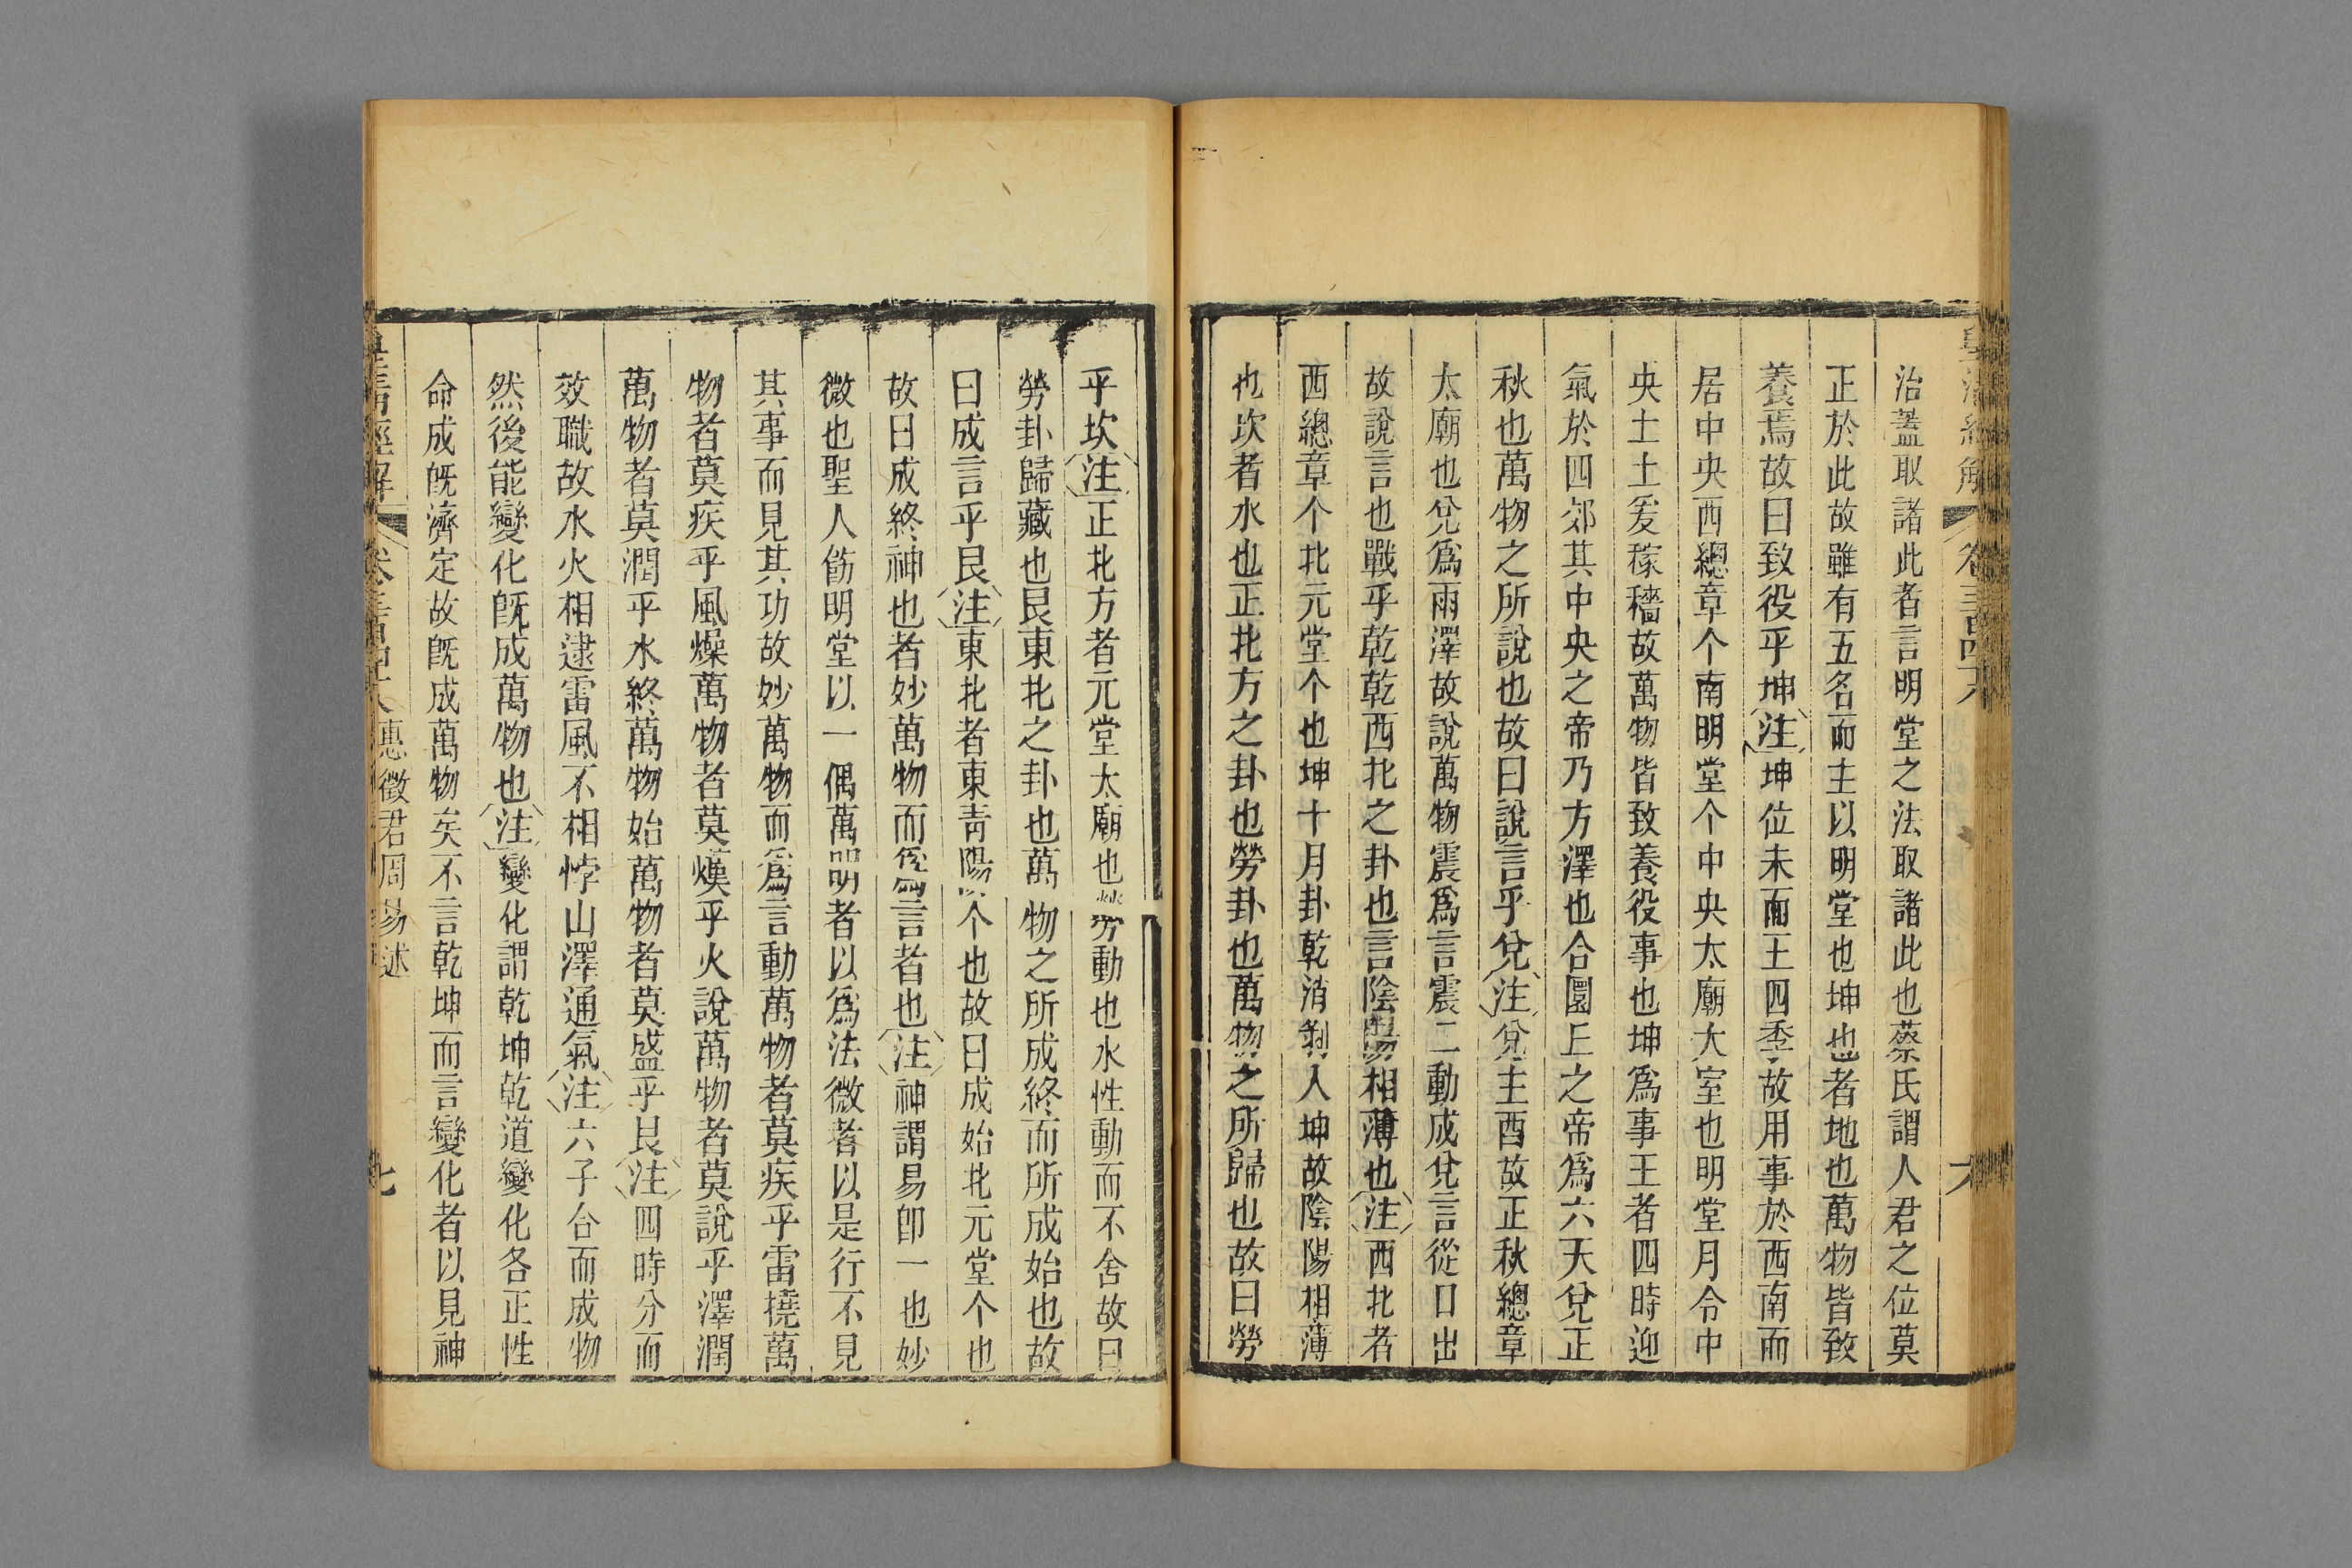 治蓋取諸此者言明堂之法取諸此也蔡氏謂人君之位莫
正於此故雖有五名而主以明堂也坤也者地也萬物皆致
養焉故曰致役乎坤注坤位未而王四季故用事於西南而
居中央西總章个南明堂个中央太廟大室也明堂月令中
央土土爰稼穡故萬物皆致養役事也坤為事王者四時迎
氣於四郊其中央之帝乃方澤也合圜丘之帝爲六天兌正
秋也萬物之所說也故曰說言乎兌注兌主酉故正秋總章
太廟也兌爲雨澤故說萬物震爲言震二動成兌言從口出
故說言也戰乎乾乾西北之卦也言陰陽相薄也注西北者
西總章个北元堂个也坤十月卦乾消剝入坤故陰陽相薄
也坎者水也正北方之卦也勞卦也萬物之所歸也故曰勞
乎坎注正北方者元堂太廟也勞動也水性動而不舍故曰
勞卦歸藏也艮東北之卦也萬物之所成終而所成始也故
曰成言乎艮注東北者東青陽个也故曰成始北元堂个也
故曰成終神也者妙萬物而爲言者也注神謂易卽一也妙
微也聖人飭明堂以一偶萬明者以爲法微者以是行不見
其事而見其功故妙萬物而爲言動萬物者莫疾乎雷撓萬
物者莫疾乎風燥萬物者莫熯乎火說萬物者莫說乎澤潤
萬物者莫潤乎水終萬物始萬物者莫盛乎艮注四時分而
效職故水火相逮雷風不相悖山澤通氣注六子合而成物
然後能變化旣成萬物也注變化謂乾坤乾道變化各正性
命成旣濟定故旣成萬物矣不言乾坤而言變化者以見神
皇淸經解 卷三百四十八 惠徵君周易述 七